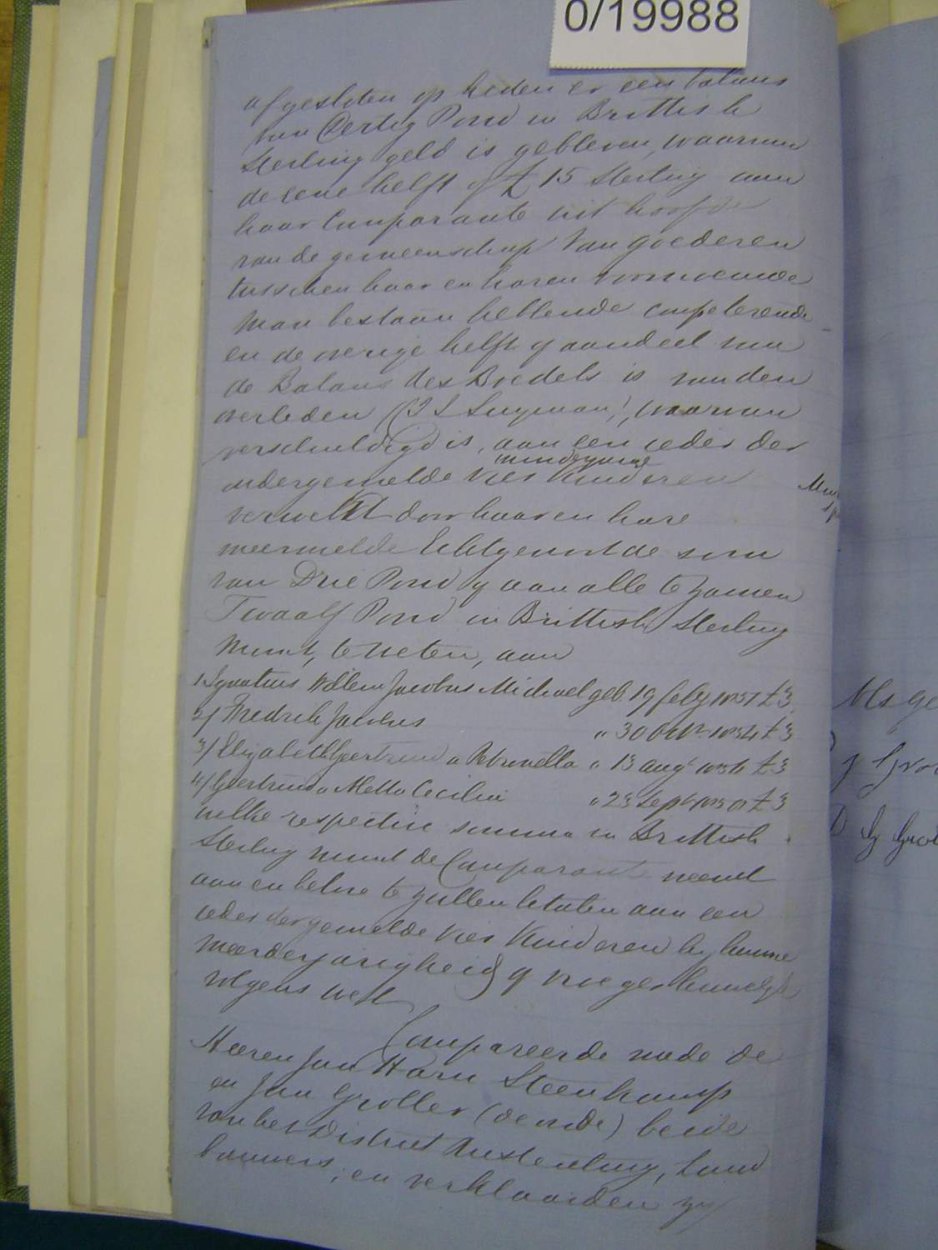 0/19988
afgesloten op heden er een balans
van Dertig Pond in Brittish
Sterling geld is gebleven, waarvan
de eene helft of £ 15 Sterling aan
haar Comparante uit hoofde
van de gemeenschap van goederen
tusschen haar en haren voornoemde
man bestaan hebbende competerende
en de overige helft of aandeel van
de Balans des Boedels is van den
overleden waarvan
verschuldigd is, aan een ieder der
minderjarige
ondergemelde vier Kinderen
verwekt door haar en hare
meermelde Echtgenoot de som
van Drie Pond of aan alle te zamen
Twaalf Pond in Brittish Sterling
Munt, te weten, aan
1/ Ignatius Willem Jacobus Michael geb 19 feby £3
2/ Fredrik Jacobus " 30 £3
3/ Elizabeth Geertruida Petronella " 13 augt £3
4/ Geertruida Metta Cecilia " 23 Sept £3
welke respective somma in Brittish
Sterling munt de Comparant neemt
aan en belove te zullen betalen aan een
ieder der gemelde vier Kinderen by hunne
meerderjarigheid of vroeger huwelyk
volgens wet
Compareerde mede de
Heeren Jan Harm Steenkamp
en Jan Grobler (de oude) beide
van het District Rustenburg, Land
bouwers, en verklaarden zy